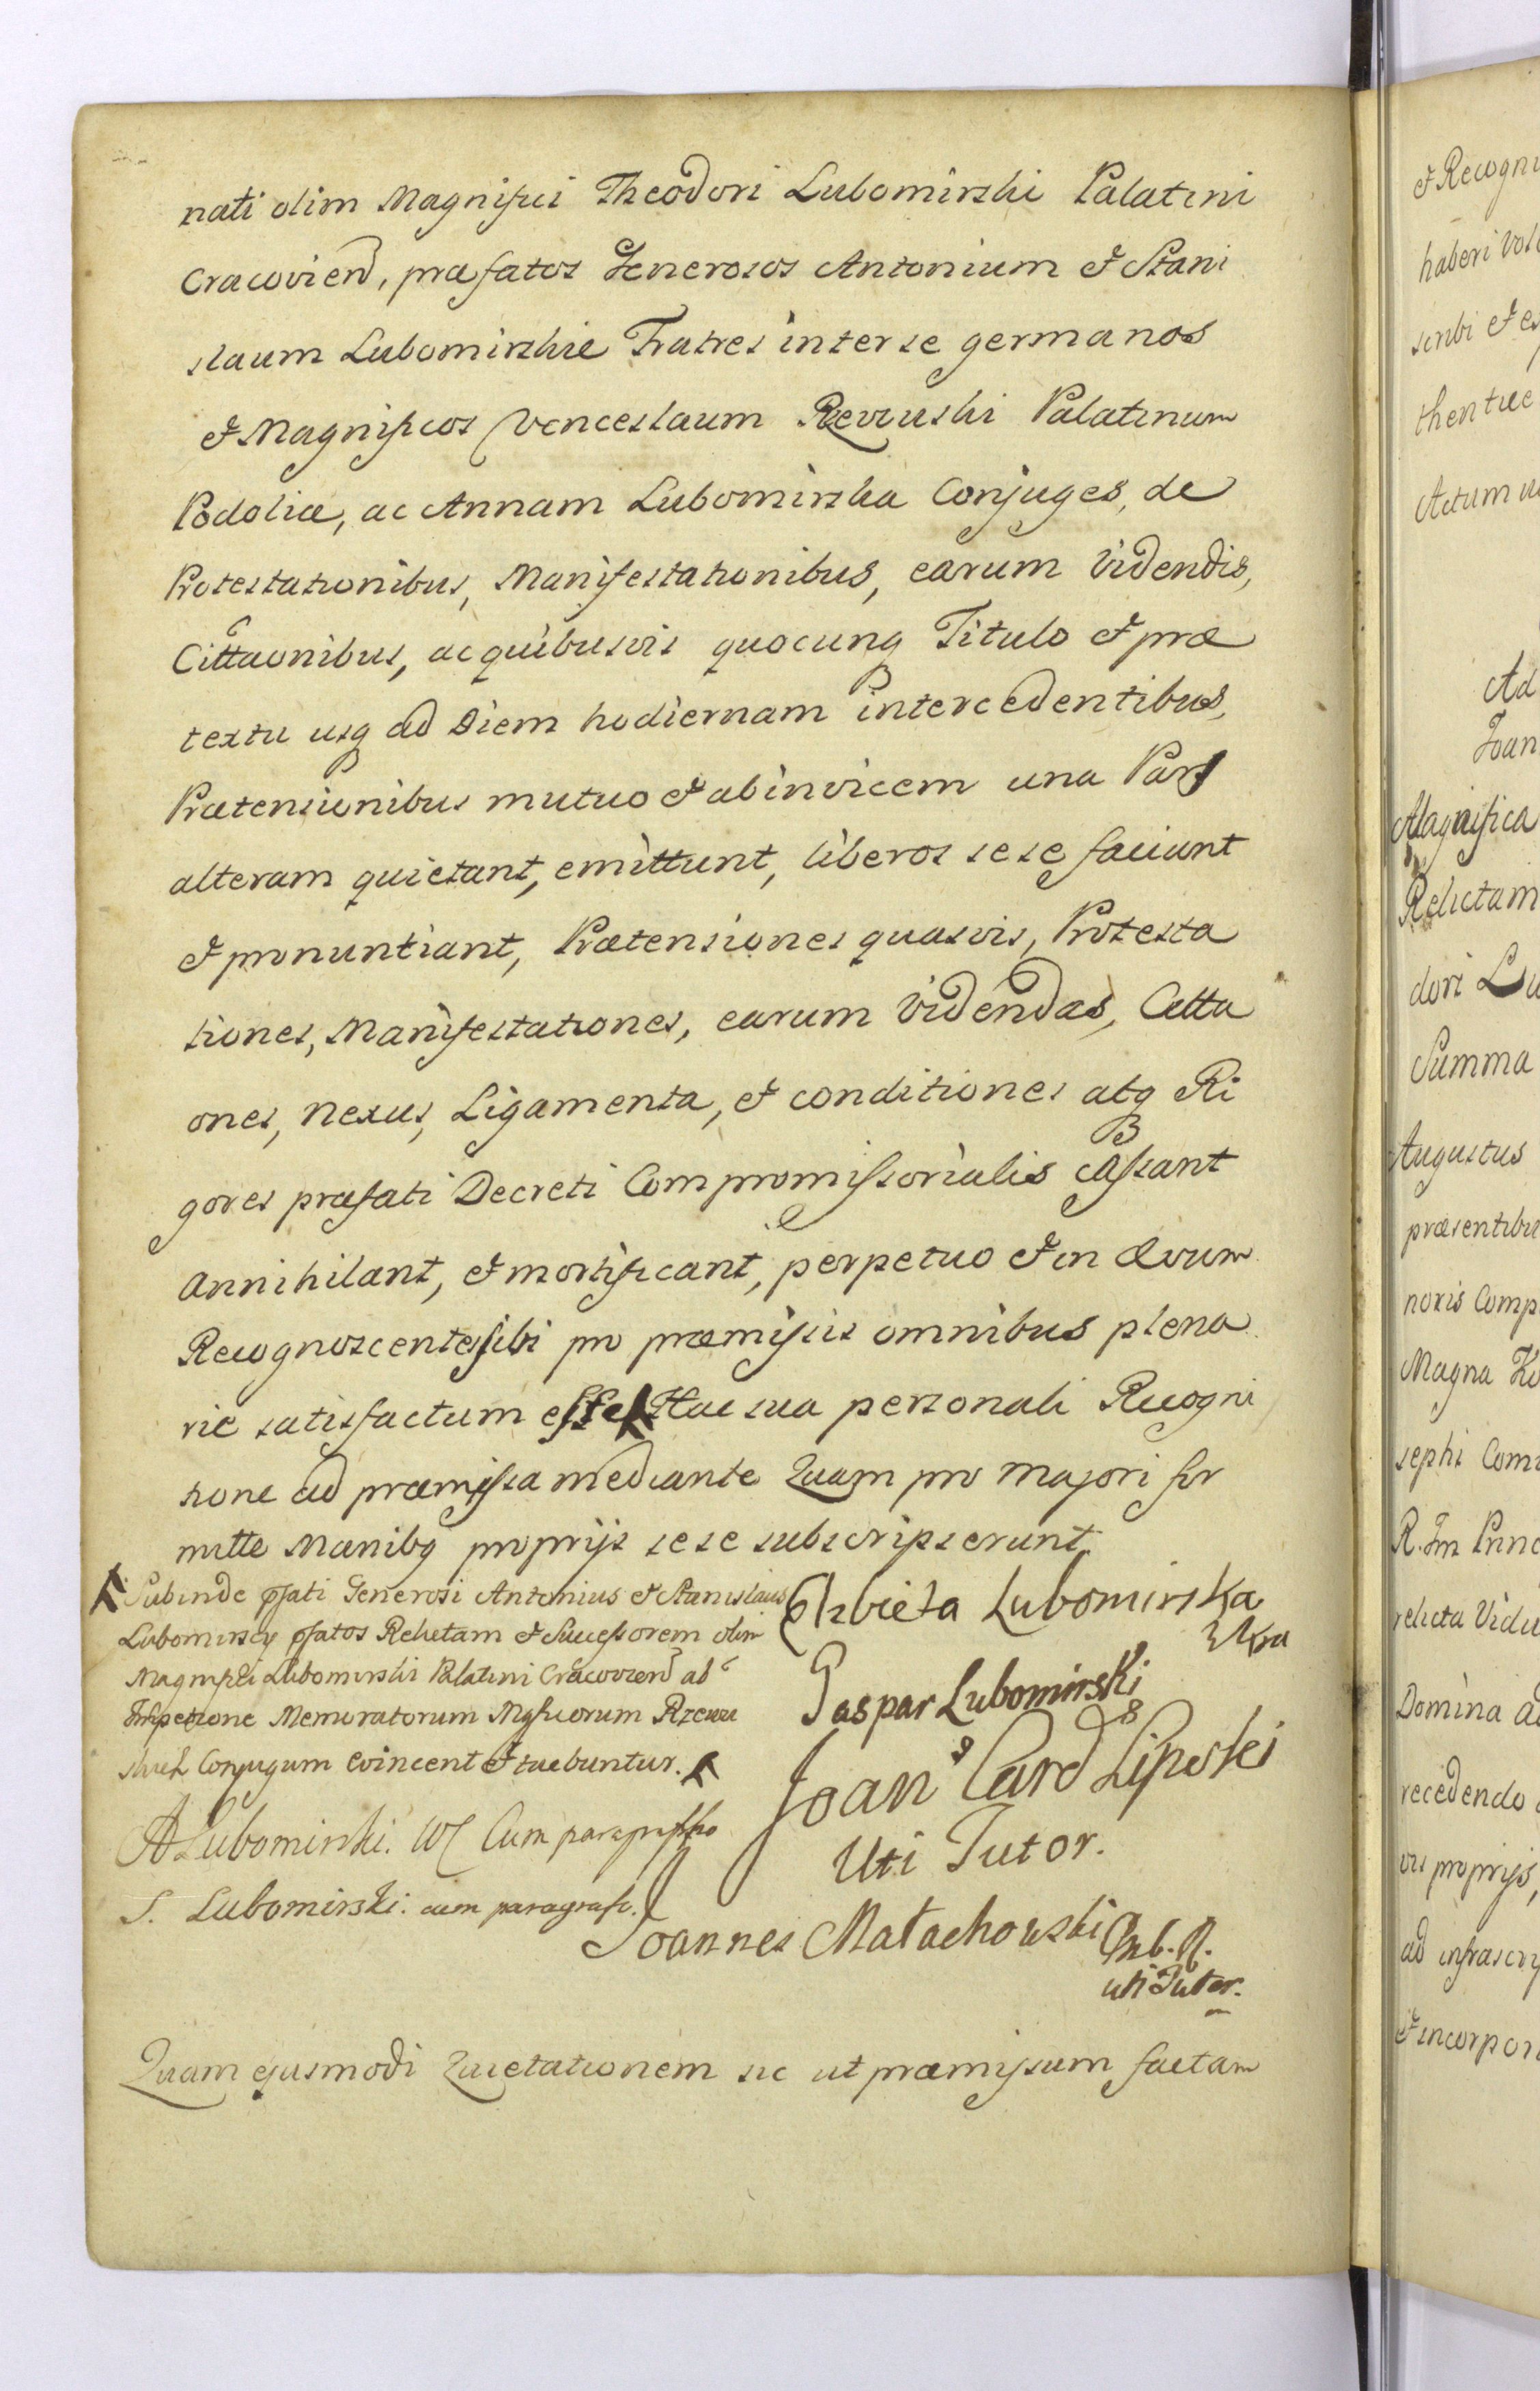 nati olim Magnifici Theodori Lubomirski Palatini
Cracovien, præfatos Generosos Antonium et Stani
slaum Lubomirskie Fratres inter se germanos
et Magnificos Venceslaum Rewuski Palatinum
Podoliæ, ac Annam Lubomirska Conjuges, de
Protestationibus, Manifestationibus, earum Videndis,
Cittaonibus, ac quibusvis quocunq Titulo et præ
textu usq ad Diem hodiernam intercedentibus,
Prætensionibus mutuo et ab invicem una Pars
alteram quietant, emittunt, liberos sese faciunt
et pronuntiant, Prætensiones quasvis, Protesta
tiones, Manifestationes, earum Videndas, Citta
ones, nexus, Ligamenta, et conditiones atq Ri
gores præfati Decreti Compromissorialis cassant
Annihilant, et mortificant, perpetuo et in ævum
Recognoscentes sibi pro præmissis omnibus plena
rie satisfactum esse Hac sua personali Recogni
tione ad præmissa mediante Quam pro majori fir
mitte Manibq proprijs sese subscripserunt.
Subinde pfati Generosi Antonius et Stanislaus
Lubomirscy pfatos Relictam et Successorem olim
Magnifici Lubomirski Palatini Cracovien ab
Impetione Memoratorum Mgficorum Rzewu
skich Conjugum evincent et tuebuntur.
Elzbieta Lubomirska
Gaspar Lubomirski
Joan Card Lipski
Uti Tutor.
A Lubomirski. W Cum paragrapho
S. Lubomirski: cum paragrafo.
Joannes Małachowski
uti Tutor.
Quam ejusmodi Quietationem sic ut præmissum factam
et Recogni
haberi vol
scribi et e
thentice
Actum u
Ad
Joan
Magnifica
Relictam
dori Lu
Summa
Augustus
præsentibu
noris Comp
Magna
sephi Com
R. Im Princ
relicta Vidu
Domina
recedendo
vis proprijs,
ad infrascrip
et incorpor